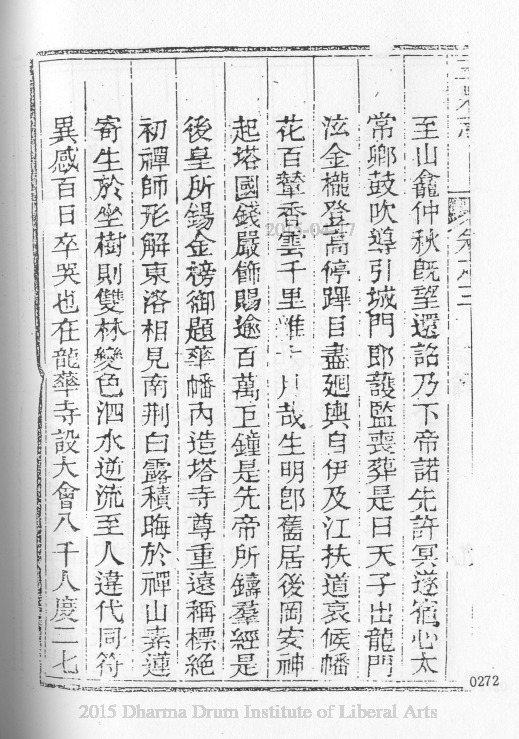 至山龕仲秋既望還詔乃下帝諾先許冥遂宿心太
常鄉鼓吹導引城門郎護監喪葬是日天子出龍門
泫金櫬登高停蹕目盡廻輿自伊及江扶道哀候幡
花百輦香雲千里維十 月哉生明卽舊居後岡安神
起塔國錢嚴飾賜逾百萬巨鐘是先帝所鑄羣經是
後皇所錫金榜御題華幡內造塔寺尊重遠稱標絕
初禪師形解東洛相見南荆白露積晦於禪山素蓮
寄生於坐樹則雙林變色泗水逆流至人違代同符
異感百日卒哭也在龍華寺設大會八千人度二七
0272
2015 Dharma Drum Institute of Liberal Arts